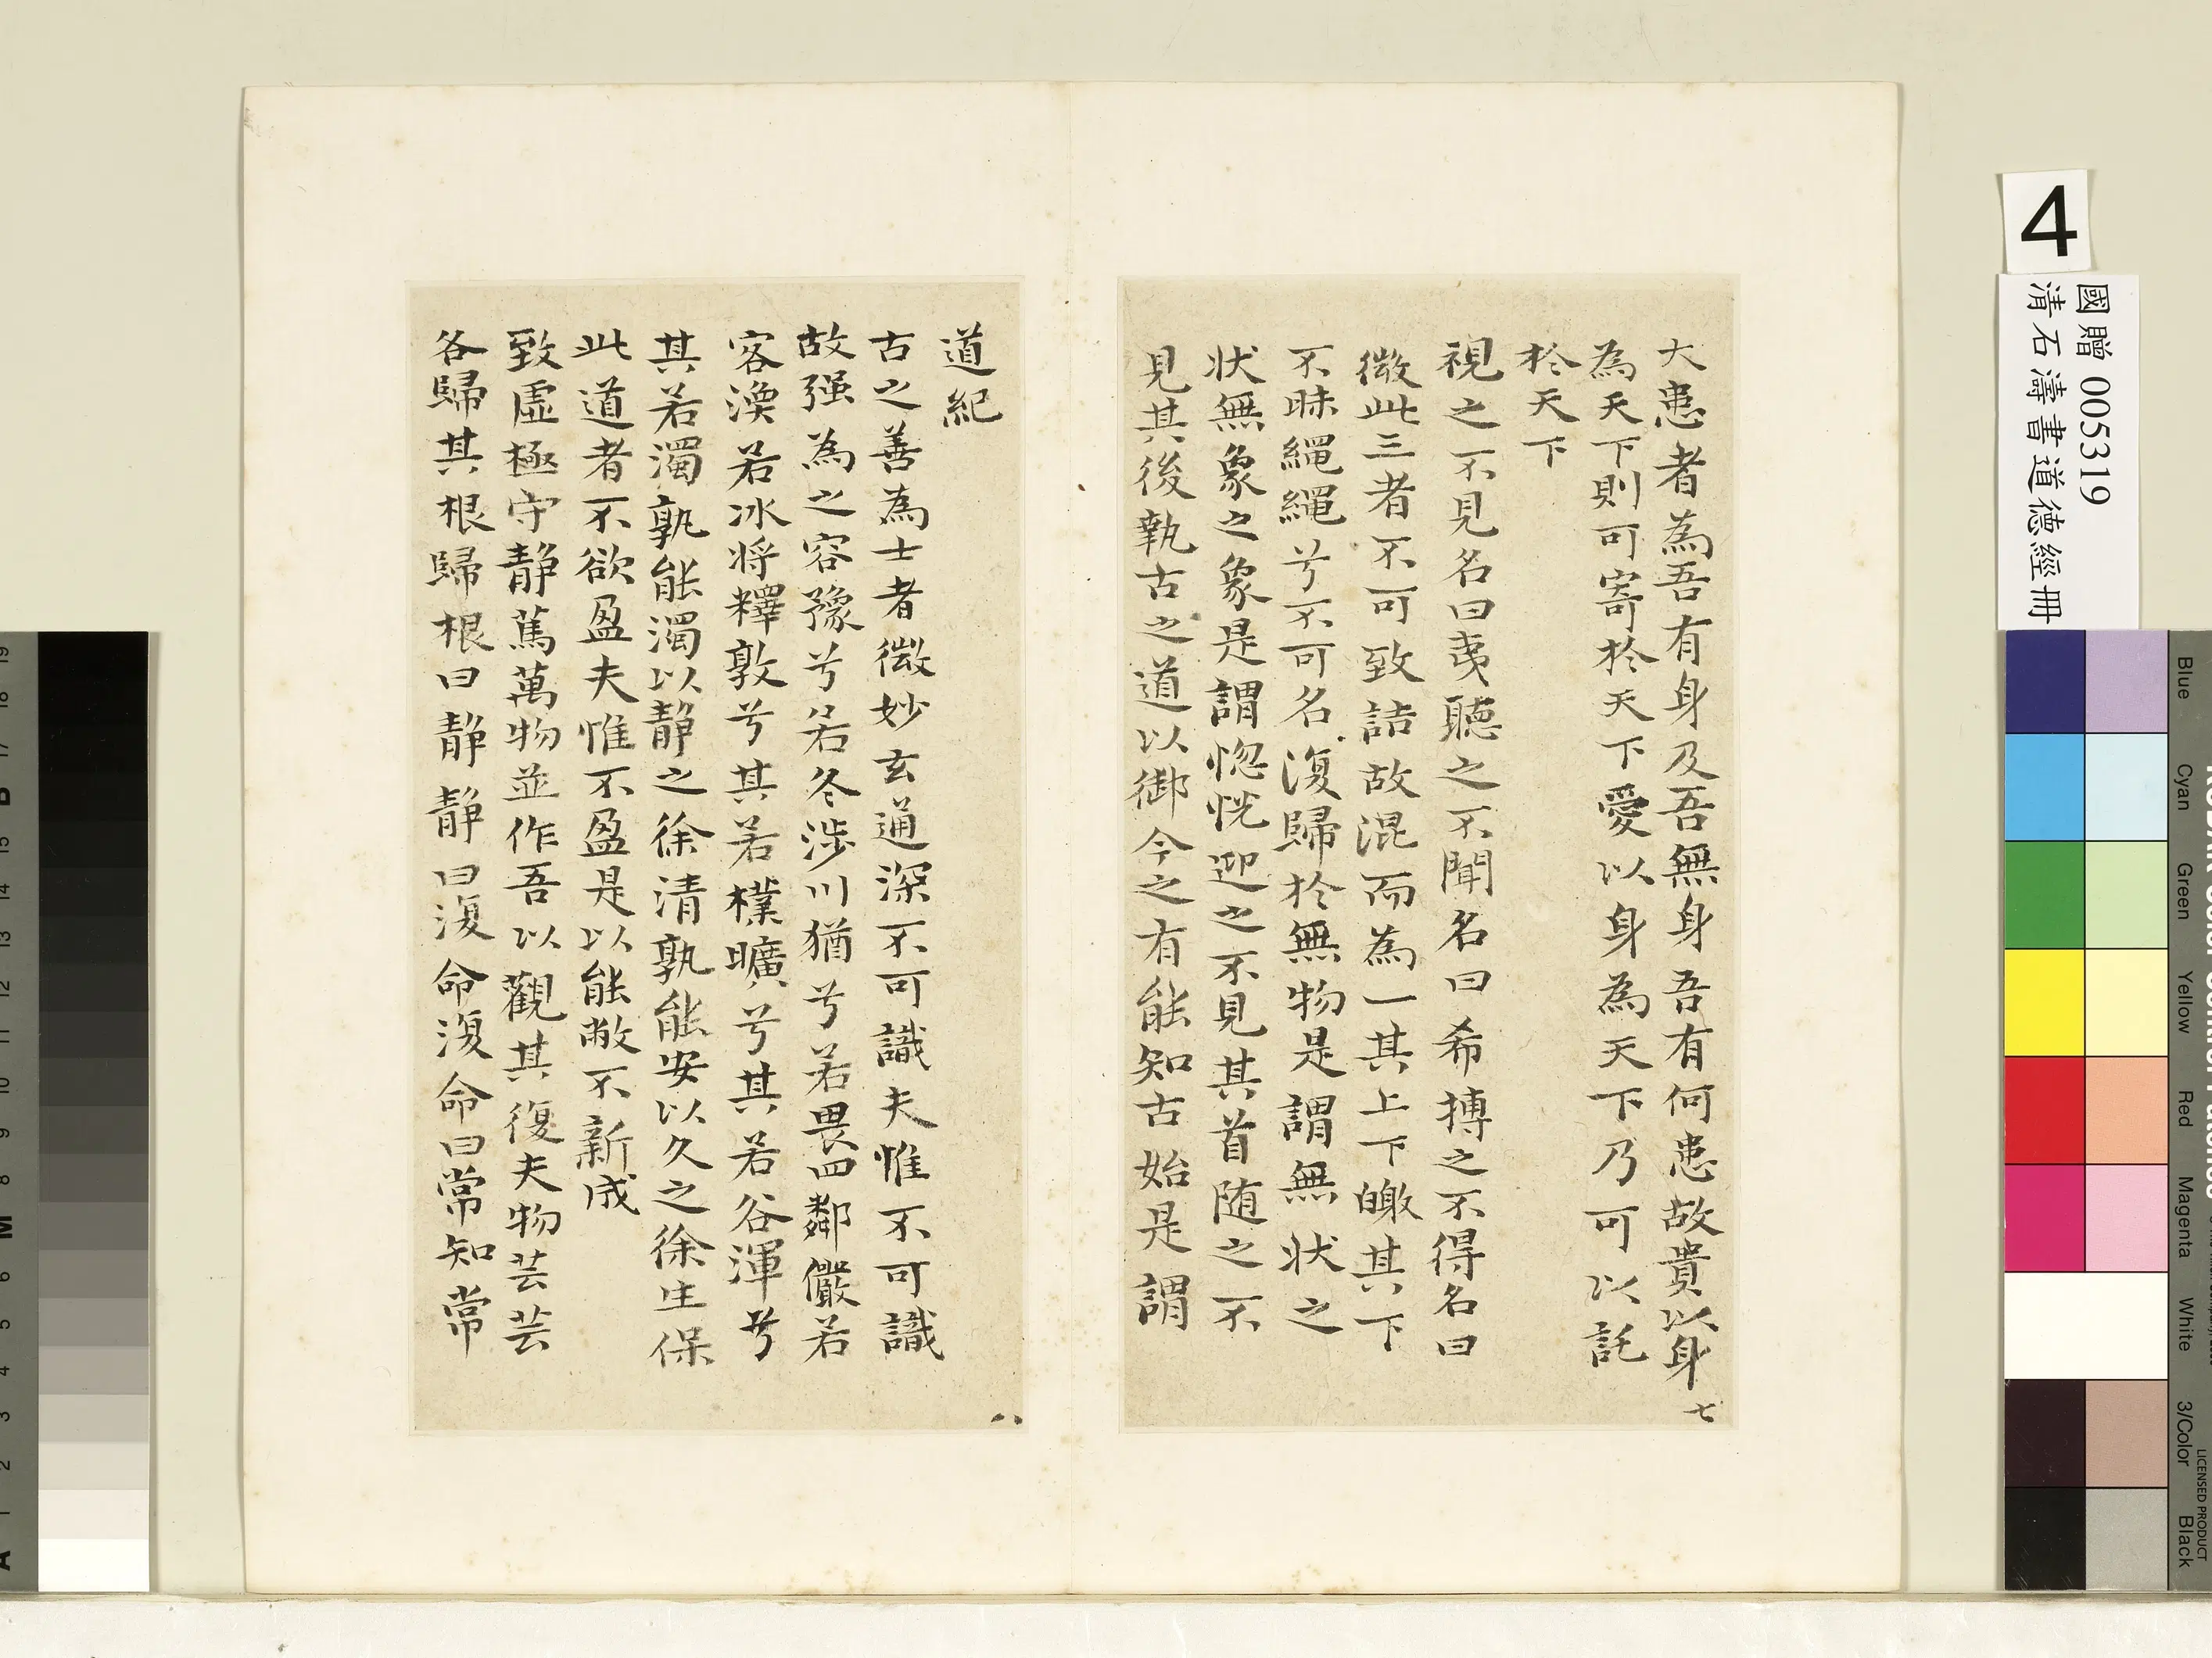 大患者為吾有身及吾無身吾有何患故貴以身
為天下則可寄於天下愛以身為天下乃可以託
於天下
視之不見名曰夷聽之不聞名曰希搏之不得名曰
微此三者不可致詰故混而為一其上下皦其下
不昧繩繩兮不可名復歸於無物是謂無状之
状無象之象是謂惚恍迎之不見其首随之不
見其後執古之道以御今之有能知古始是謂
七
道紀
古之善為士者微妙玄通深不可識夫惟不可識
故强為之容豫兮若冬涉川猶兮若畏四鄰儼若
客渙若冰将釋敦兮其若樸曠兮其若谷渾兮
其若濁孰能濁以靜之徐清孰能安以久之徐生保
此道者不欲盈夫惟不盈是以能敝不新成
致虛極守靜篤萬物並作吾以觀其復夫物芸芸
各歸其根歸根曰靜靜曰復命復命曰常知常
八
4
國贈 005319
清石濤書道德經冊
Blue
Cyan
Green
Yellow
Red
Magenta
White
3/Color
Black
LICENSED PRODUCT
19
18
17
B
15
14
13
12
11
10
9
8
M
6
5
4
3
2
1
A